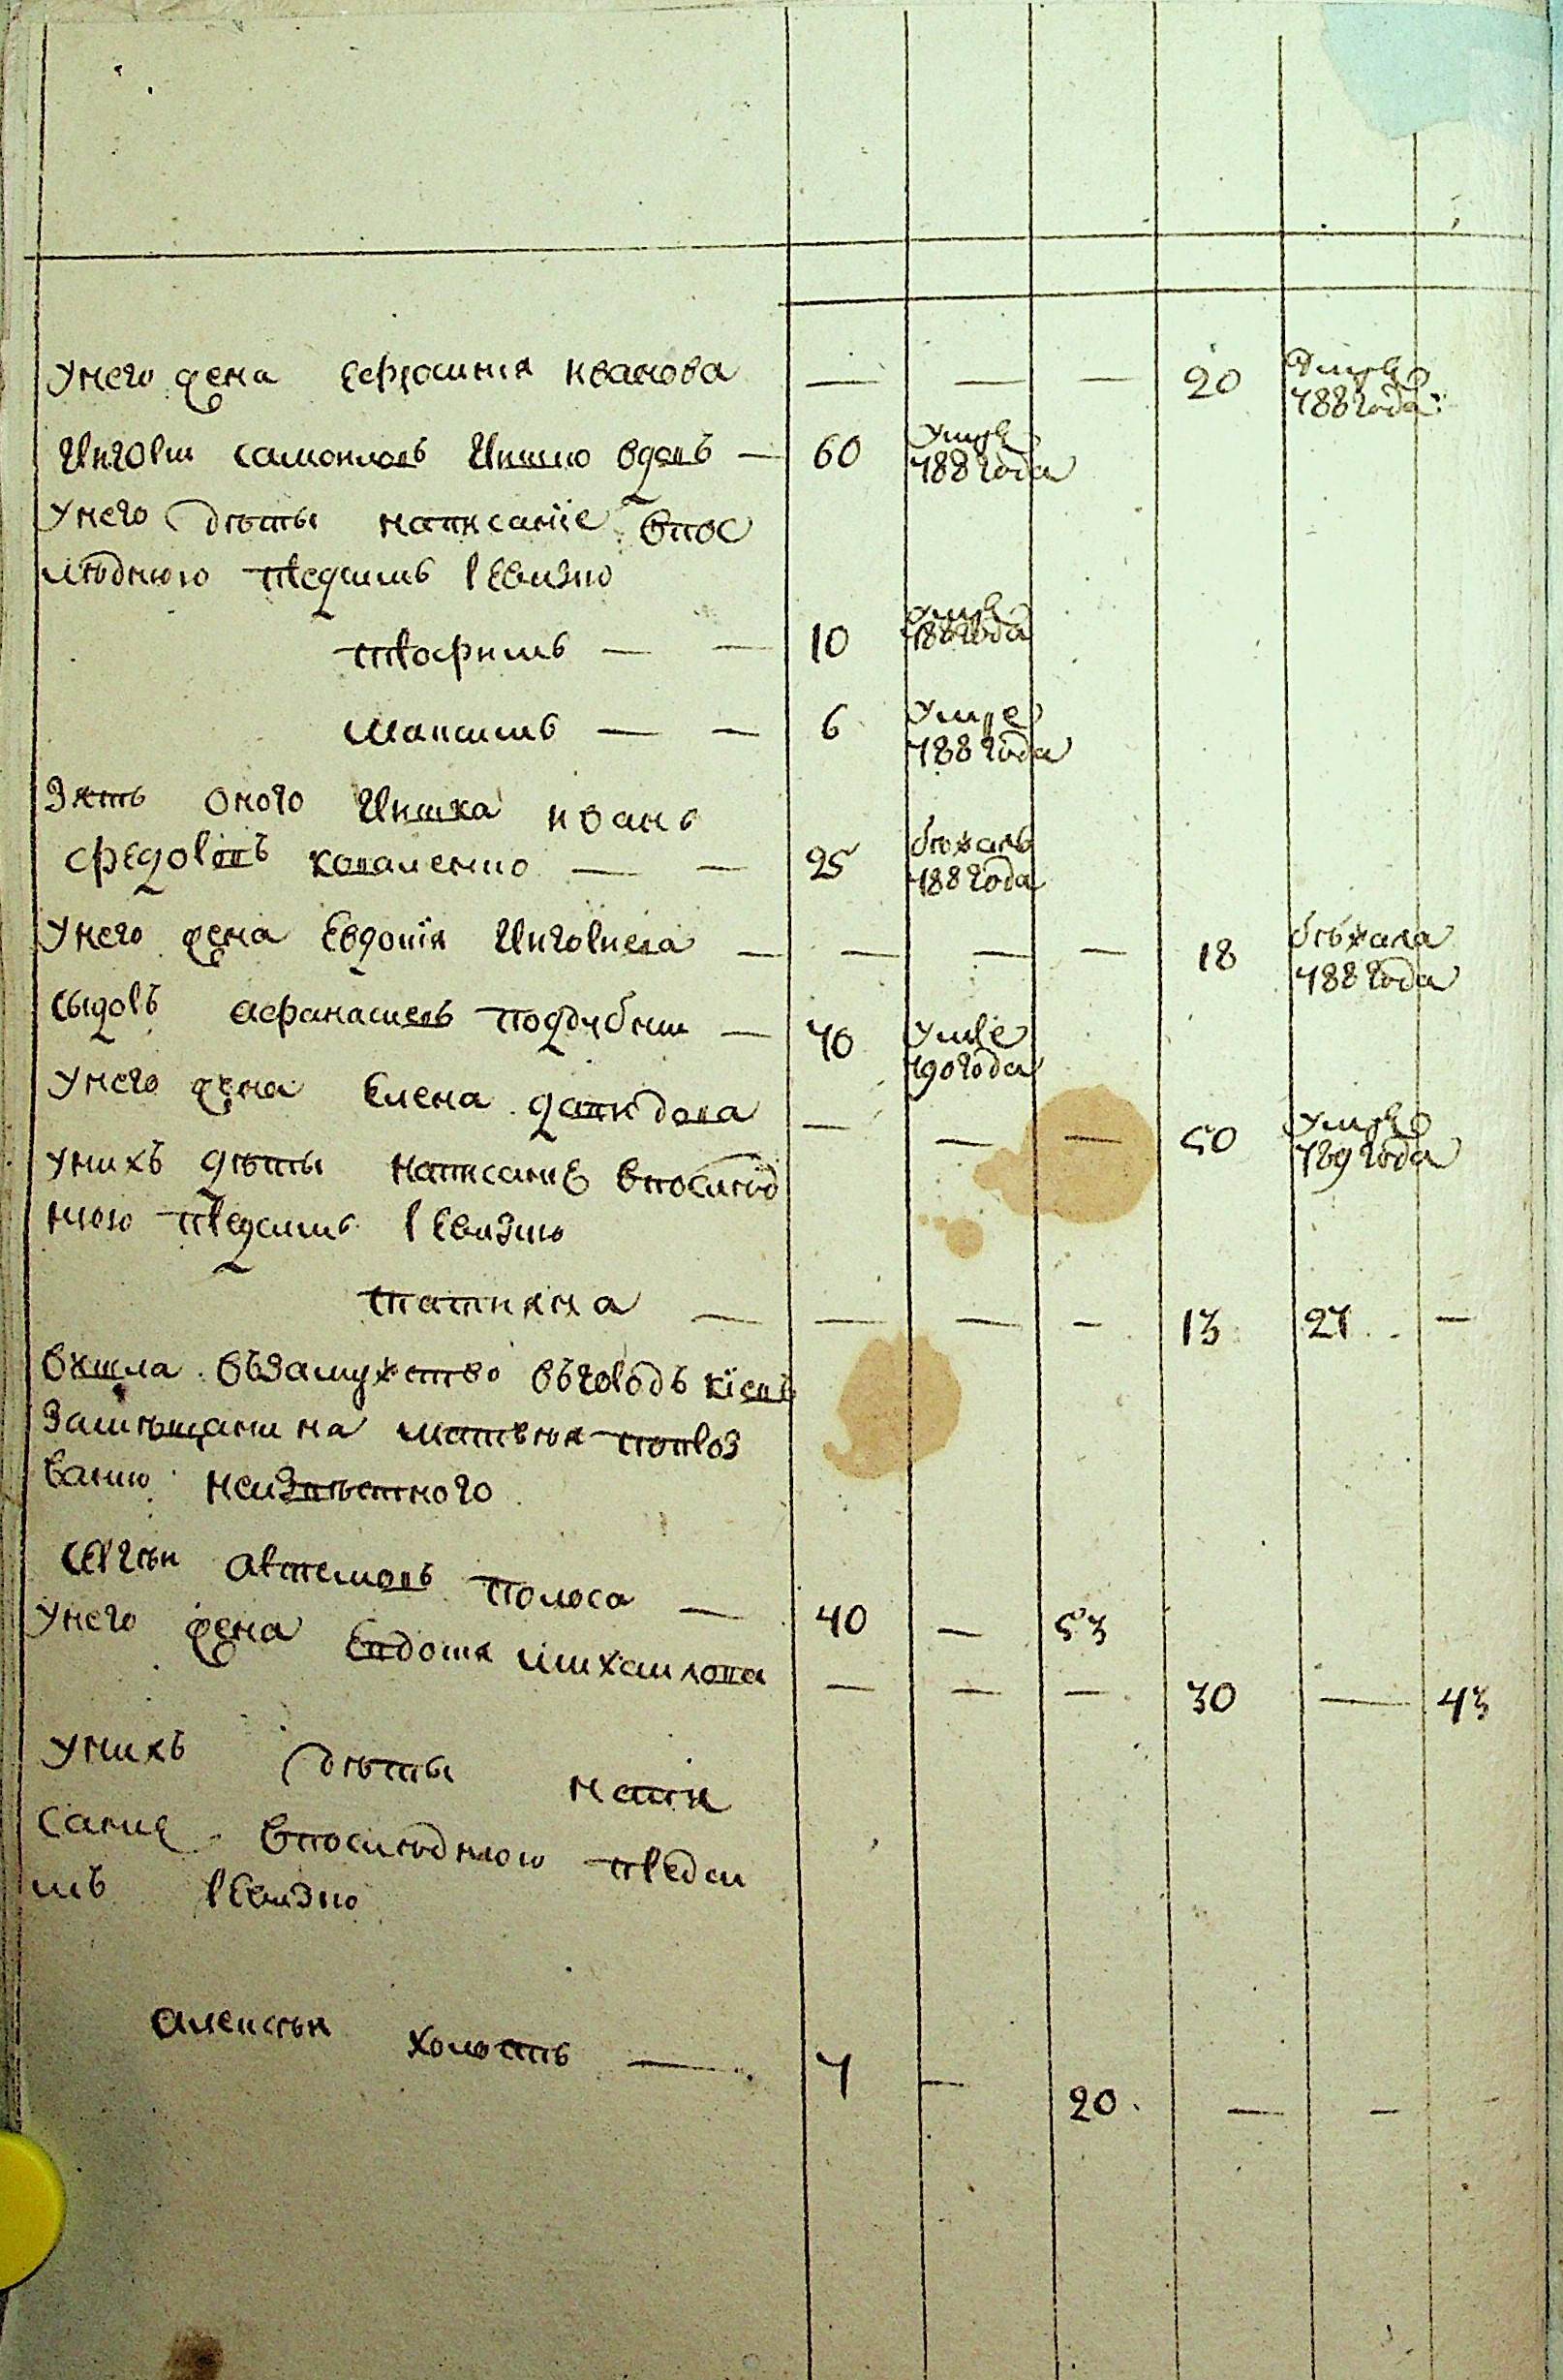 У него жена Ефросиния Иванова — — — 20 Умре 788 года
Григори Самойловъ Гишко вдовъ — 60 Умре 788 года
У него дѣты написание в пос
лѣднюю пред симъ ревизию
Трофимъ — — 10 Умре 788 года
Максимъ — — 6 Умре 788 года
Зять оного Гишка Иванъ
Федоровъ Коваленко — — 25 бѣжалъ 788 года
У него жена Евдокия Григориева — — — — 18 бѣжала 788 года
Сыдоръ Афанасиевъ Поддубни — 70 Умре 790 года
У него жена Елена Давидова — — — 50 Умре 789 года
У нихъ дѣты написание в послѣд
нюю пред симъ ревизию
Татияна — — — — 13 27 —
вышла въ замужство въ городъ Киевъ
за мѣщанина Матвѣя по проз
ванию неизвѣстного
Сергѣй Артемовъ Полоса — 40 — 53
У него жена Евдокия Михайлова — — — 30 — 43
У нихъ дѣты напи
сание в послѣднюю пред си
мъ ревизию
Алексѣй холостъ — 7 — 20 — —